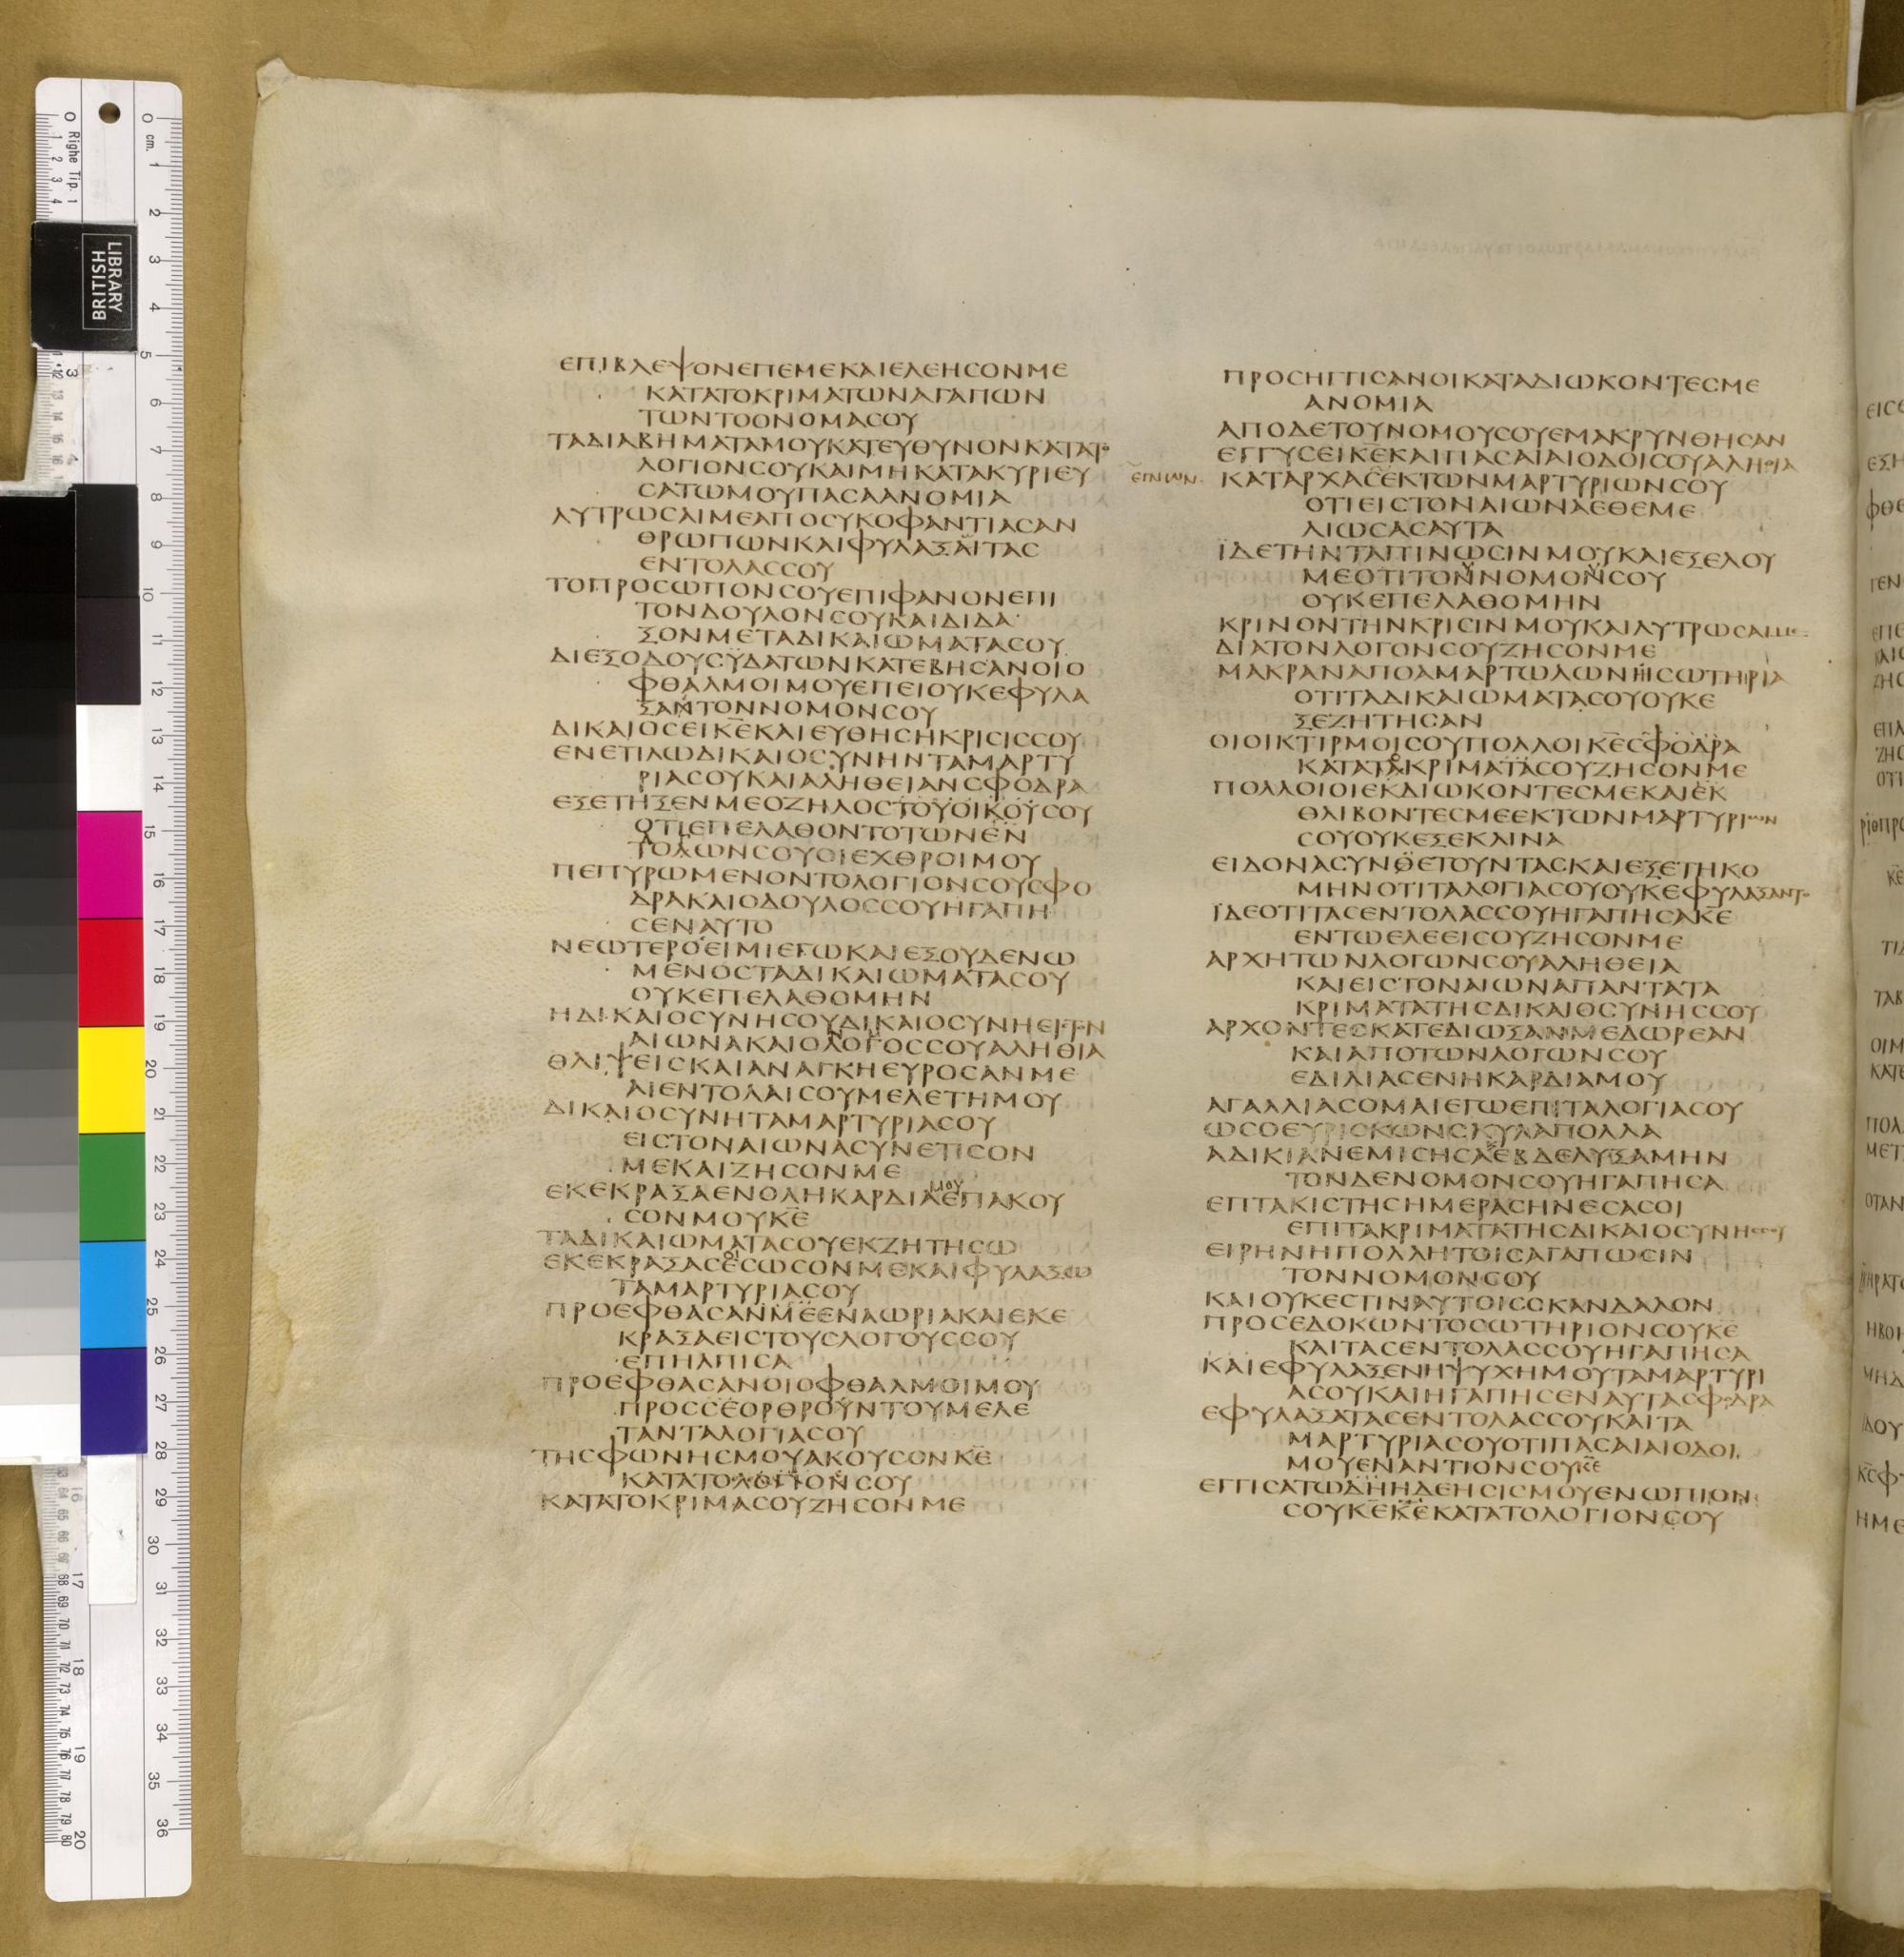 ΕΠΙΒΛΕΨΟΝΕΠΕΜΕΚΑΙΕΛΕΗϹΟΝΜΕ
ΚΑΤΑΤΟΚΡΙΜΑΤΩΝΑΓΑΠΩΝ
ΤΩΝΤΟΟΝΟΜΑϹΟΥ
ΤΑΔΙΑΒΗΜΑΤΑΜΟΥΚΑΤΕΥΘΥΝΟΝΚΑΤΑΤΟ
ΛΟΓΙΟΝϹΟΥΚΑΙΜΗΚΑΤΑΚΥΡΙΕΥ
ϹΑΤΩΜΟΥΠΑϹΑΑΝΟΜΙΑ
ΛΥΤΡΩϹΑΙΜΕΑΠΟϹΥΚΟΦΑΝΤΙΑϹΑΝ
ΘΡΩΠΩΝΚΑΙΦΥΛΑΞΑΙΤΑϹ
ΕΝΤΟΛΑϹϹΟΥ
ΤΟΠΡΟϹΩΠΟΝϹΟΥΕΠΙΦΑΝΟΝΕΠΙ
ΤΟΝΔΟΥΛΟΝϹΟΥΚΑΙΔΙΔΑ
ΞΟΝΜΕΤΑΔΙΚΑΙΩΜΑΤΑϹΟΥ
ΔΙΕΞΟΔΟΥϹΫΔΑΤΩΝΚΑΤΕΒΗϹΑΝΟΙΟ
ΦΘΑΛΜΟΙΜΟΥΕΠΕΙΟΥΚΕΦΥΛΑ
ΞΑΝΤΟΝΝΟΜΟΝϹΟΥ
ΔΙΚΑΙΟϹΕΙΚ̅Ε̅ΚΑΙΕΥΘΗϹΗΚΡΙϹΙϹϹΟΥ
ΕΝΕΤΙΛΩΔΙΚΑΙΟϹΥΝΗΝΤΑΜΑΡΤΥ
ΡΙΑϹΟΥΚΑΙΑΛΗΘΕΙΑΝϹΦΟΔΡΑ
ΕΞΕΤΗΞΕΝΜΕΟΖΗΛΟϹΤΟΥΟΙΚΟΥϹΟΥ
ΟΤΙΕΠΕΛΑΘΟΝΤΟΤΩΝΕΝ
ΤΟΛΩΝϹΟΥΟΙΕΧΘΡΟΙΜΟΥ
ΠΕΠΥΡΩΜΕΝΟΝΤΟΛΟΓΙΟΝϹΟΥϹΦΟ
ΔΡΑΚΑΙΟΔΟΥΛΟϹϹΟΥΗΓΑΠΗ
ϹΕΝΑΥΤΟ
ΝΕΩΤΕΡΟΕΙΜΙΕΓΩΚΑΙΕΞΟΥΔΕΝΩ
ΜΕΝΟϹΤΑΔΙΚΑΙΩΜΑΤΑϹΟΥ
ΟΥΚΕΠΕΛΑΘΟΜΗΝ
ΗΔΙΚΑΙΟϹΥΝΗϹΟΥΔΙΚΑΙΟϹΥΝΗΕΙϹΤΝ
ΑΙΩΝΑΚΑΙΟΛΟΓΟϹϹΟΥΑΛΗΘΙΑ
ΘΛΙΨΕΙϹΚΑΙΑΝΑΓΚΗΕΥΡΟϹΑΝΜΕ
ΑΙΕΝΤΟΛΑΙϹΟΥΜΕΛΕΤΗΜΟΥ
ΔΙΚΑΙΟϹΥΝΗΤΑΜΑΡΤΥΡΙΑϹΟΥ
ΕΙϹΤΟΝΑΙΩΝΑϹΥΝΕΤΙϹΟΝ
ΜΕΚΑΙΖΗϹΟΝΜΕ
ΕΚΕΚΡΑΞΑΕΝΟΛΗΚΑΡΔΙΑΜΟΥΕΠΑΚΟΥ
ϹΟΝΜΟΥΚ̅Ε̅
ΤΑΔΙΚΑΙΩΜΑΤΑϹΟΥΕΚΖΗΤΗϹΩ
ΕΚΕΚΡΑΞΑϹΕϹΩϹΟΝΜΕΚΑΙΦΥΛΑΞΩ
ΤΑΜΑΡΤΥΡΙΑϹΟΥ
ΠΡΟΕΦΘΑϹΑΝΜΕΕΝΑΩΡΙΑΚΑΙΕΚΕ
ΚΡΑΞΑΕΙϹΤΟΥϹΛΟΓΟΥϹϹΟΥ
ΕΠΗΛΠΙϹΑ
ΠΡΟΕΦΘΑϹΑΝΟΙΟΦΘΑΛΜΟΙΜΟΥ
ΠΡΟϹϹΕΟΡΘΡΟΥΝΤΟΥΜΕΛΕ
ΤΑΝΤΑΛΟΓΙΑϹΟΥ
ΤΗϹΦΩΝΗϹΜΟΥΑΚΟΥϹΟΝΚ̅Ε̅
ΚΑΤΑΤΟ
ΚΑΤΑΤΟΚΡΙΜΑϹΟΥΖΗϹΟΝΜΕ
ΠΡΟϹΗΓΓΙϹΑΝΟΙΚΑΤΑΔΙΩΚΟΝΤΕϹΜΕ
ΑΝΟΜΙΑ
ΑΠΟΔΕΤΟΥΝΟΜΟΥϹΟΥΕΜΑΚΡΥΝΘΗϹΑΝ
ΕΓΓΥϹΕΙΚ̅Ε̅ΚΑΙΠΑϹΑΙΑΙΟΔΟΙϹΟΥΑΛΗΘΙΑ
ΕΓΝΩΝ
ΚΑΤΑΡΧΑϹΕΚΤΩΝΜΑΡΤΥΡΙΩΝϹΟΥ
ΟΤΙΕΙϹΤΟΝΑΙΩΝΑΕΘΕΜΕ
ΛΙΩϹΑϹΑΥΤΑ
ΪΔΕΤΗΝΤΑΠΙΝΩϹΙΝΜΟΥΚΑΙΕΞΕΛΟΥ
ΜΕΟΤΙΤΟΝΝΟΜΟΝϹΟΥ
ΟΥΚΕΠΕΛΑΘΟΜΗΝ
ΚΡΙΝΟΝΤΗΝΚΡΙϹΙΝΜΟΥΚΑΙΛΥΤΡΩϹΑΙΜΕ
ΔΙΑΤΟΝΛΟΓΟΝϹΟΥΖΗϹΟΝΜΕ
ΜΑΚΡΑΝΑΠΟΑΜΑΡΤΩΛΩΝΗϹΩΤΗΡΙΑ
ΟΤΙΤΑΔΙΚΑΙΩΜΑΤΑϹΟΥΟΥΚΕ
ΞΕΖΗΤΗϹΑΝ
ΟΙΟΙΚΤΙΡΜΟΙϹΟΥΠΟΛΛΟΙΚ̅Ε̅ϹΦΟΔΡΑ
ΚΑΤΑΤΑΚΡΙΜΑΤΑϹΟΥΖΗϹΟΝΜΕ
ΠΟΛΛΟΙΟΙΕΚΔΙΩΚΟΝΤΕϹΜΕΚΑΙΕΚ
ΘΛΙΒΟΝΤΕϹΜΕΕΚΤΩΝΜΑΡΤΥΡΙΩΝ
ϹΟΥΟΥΚΕΞΕΚΛΙΝΑ
ΕΙΔΟΝΑϹΥΝΘΕΤΟΥΝΤΑϹΚΑΙΕΞΕΤΗΚΟ
ΜΗΝΟΤΙΤΑΛΟΓΙΑϹΟΥΟΥΚΕΦΥΛΑΞΑΝΤΟ
ΪΔΕΟΤΙΤΑϹΕΝΤΟΛΑϹϹΟΥΗΓΑΠΗϹΑΚ̅Ε̅
ΕΝΤΩΕΛΕΕΙϹΟΥΖΗϹΟΝΜΕ
ΑΡΧΗΤΩΝΛΟΓΩΝϹΟΥΑΛΗΘΕΙΑ
ΚΑΙΕΙϹΤΟΝΑΙΩΝΑΠΑΝΤΑΤΑ
ΚΡΙΜΑΤΑΤΗϹΔΙΚΑΙΟϹΥΝΗϹϹΟΥ
ΑΡΧΟΝΤΕϹΚΑΤΕΔΙΩΞΑΝΜΕΔΩΡΕΑΝ
ΚΑΙΑΠΟΤΩΝΛΟΓΩΝϹΟΥ
ΕΔΙΛΙΑϹΕΝΗΚΑΡΔΙΑΜΟΥ
ΑΓΑΛΛΙΑϹΟΜΑΙΕΓΩΕΠΙΤΑΛΟΓΙΑϹΟΥ
ΩϹΟΕΥΡΙϹΚΩΝϹΚΥΛΑΠΟΛΛΑ
ΑΔΙΚΙΑΝΕΜΙϹΗϹΑΕΒΔΕΛΥΞΑΜΗΝ
ΤΟΝΔΕΝΟΜΟΝϹΟΥΗΓΑΠΗϹΑ
ΕΠΤΑΚΙϹΤΗϹΗΜΕΡΑϹΗΝΕϹΑϹΟΙ
ΕΠΙΤΑΚΡΙΜΑΤΑΤΗϹΔΙΚΑΙΟϹΥΝΗϹϹΟΥ
ΕΙΡΗΝΗΠΟΛΛΗΤΟΙϹΑΓΑΠΩϹΙΝ
ΤΟΝΝΟΜΟΝϹΟΥ
ΚΑΙΟΥΚΕϹΤΙΝΑΥΤΟΙϹϹΚΑΝΔΑΛΟΝ
ΠΡΟϹΕΔΟΚΩΝΤΟϹΩΤΗΡΙΟΝϹΟΥΚ̅Ε̅
ΚΑΙΤΑϹΕΝΤΟΛΑϹϹΟΥΗΓΑΠΗϹΑ
ΚΑΙΕΦΥΛΑΞΕΝΗΨΥΧΗΜΟΥΤΑΜΑΡΤΥΡΙ
ΑϹΟΥΚΑΙΗΓΑΠΗϹΕΝΑΥΤΑϹΦΟΔΡΑ
ΕΦΥΛΑΞΑΤΑϹΕΝΤΟΛΑϹϹΟΥΚΑΙΤΑ
ΜΑΡΤΥΡΙΑϹΟΥΟΤΙΠΑϹΑΙΑΙΟΔΟΙ
ΜΟΥΕΝΑΝΤΙΟΝϹΟΥΚ̅Ε̅
ΕΓΓΙϹΑΤΩΔΗΗΔΕΗϹΙϹΜΟΥΕΝΩΠΙΟΝ
ϹΟΥΚΕΚ̅Ε̅ΚΑΤΑΤΟΛΟΓΙΟΝϹΟΥ
BRITISH
LIBRARY
Righe Tip. 1
cm.